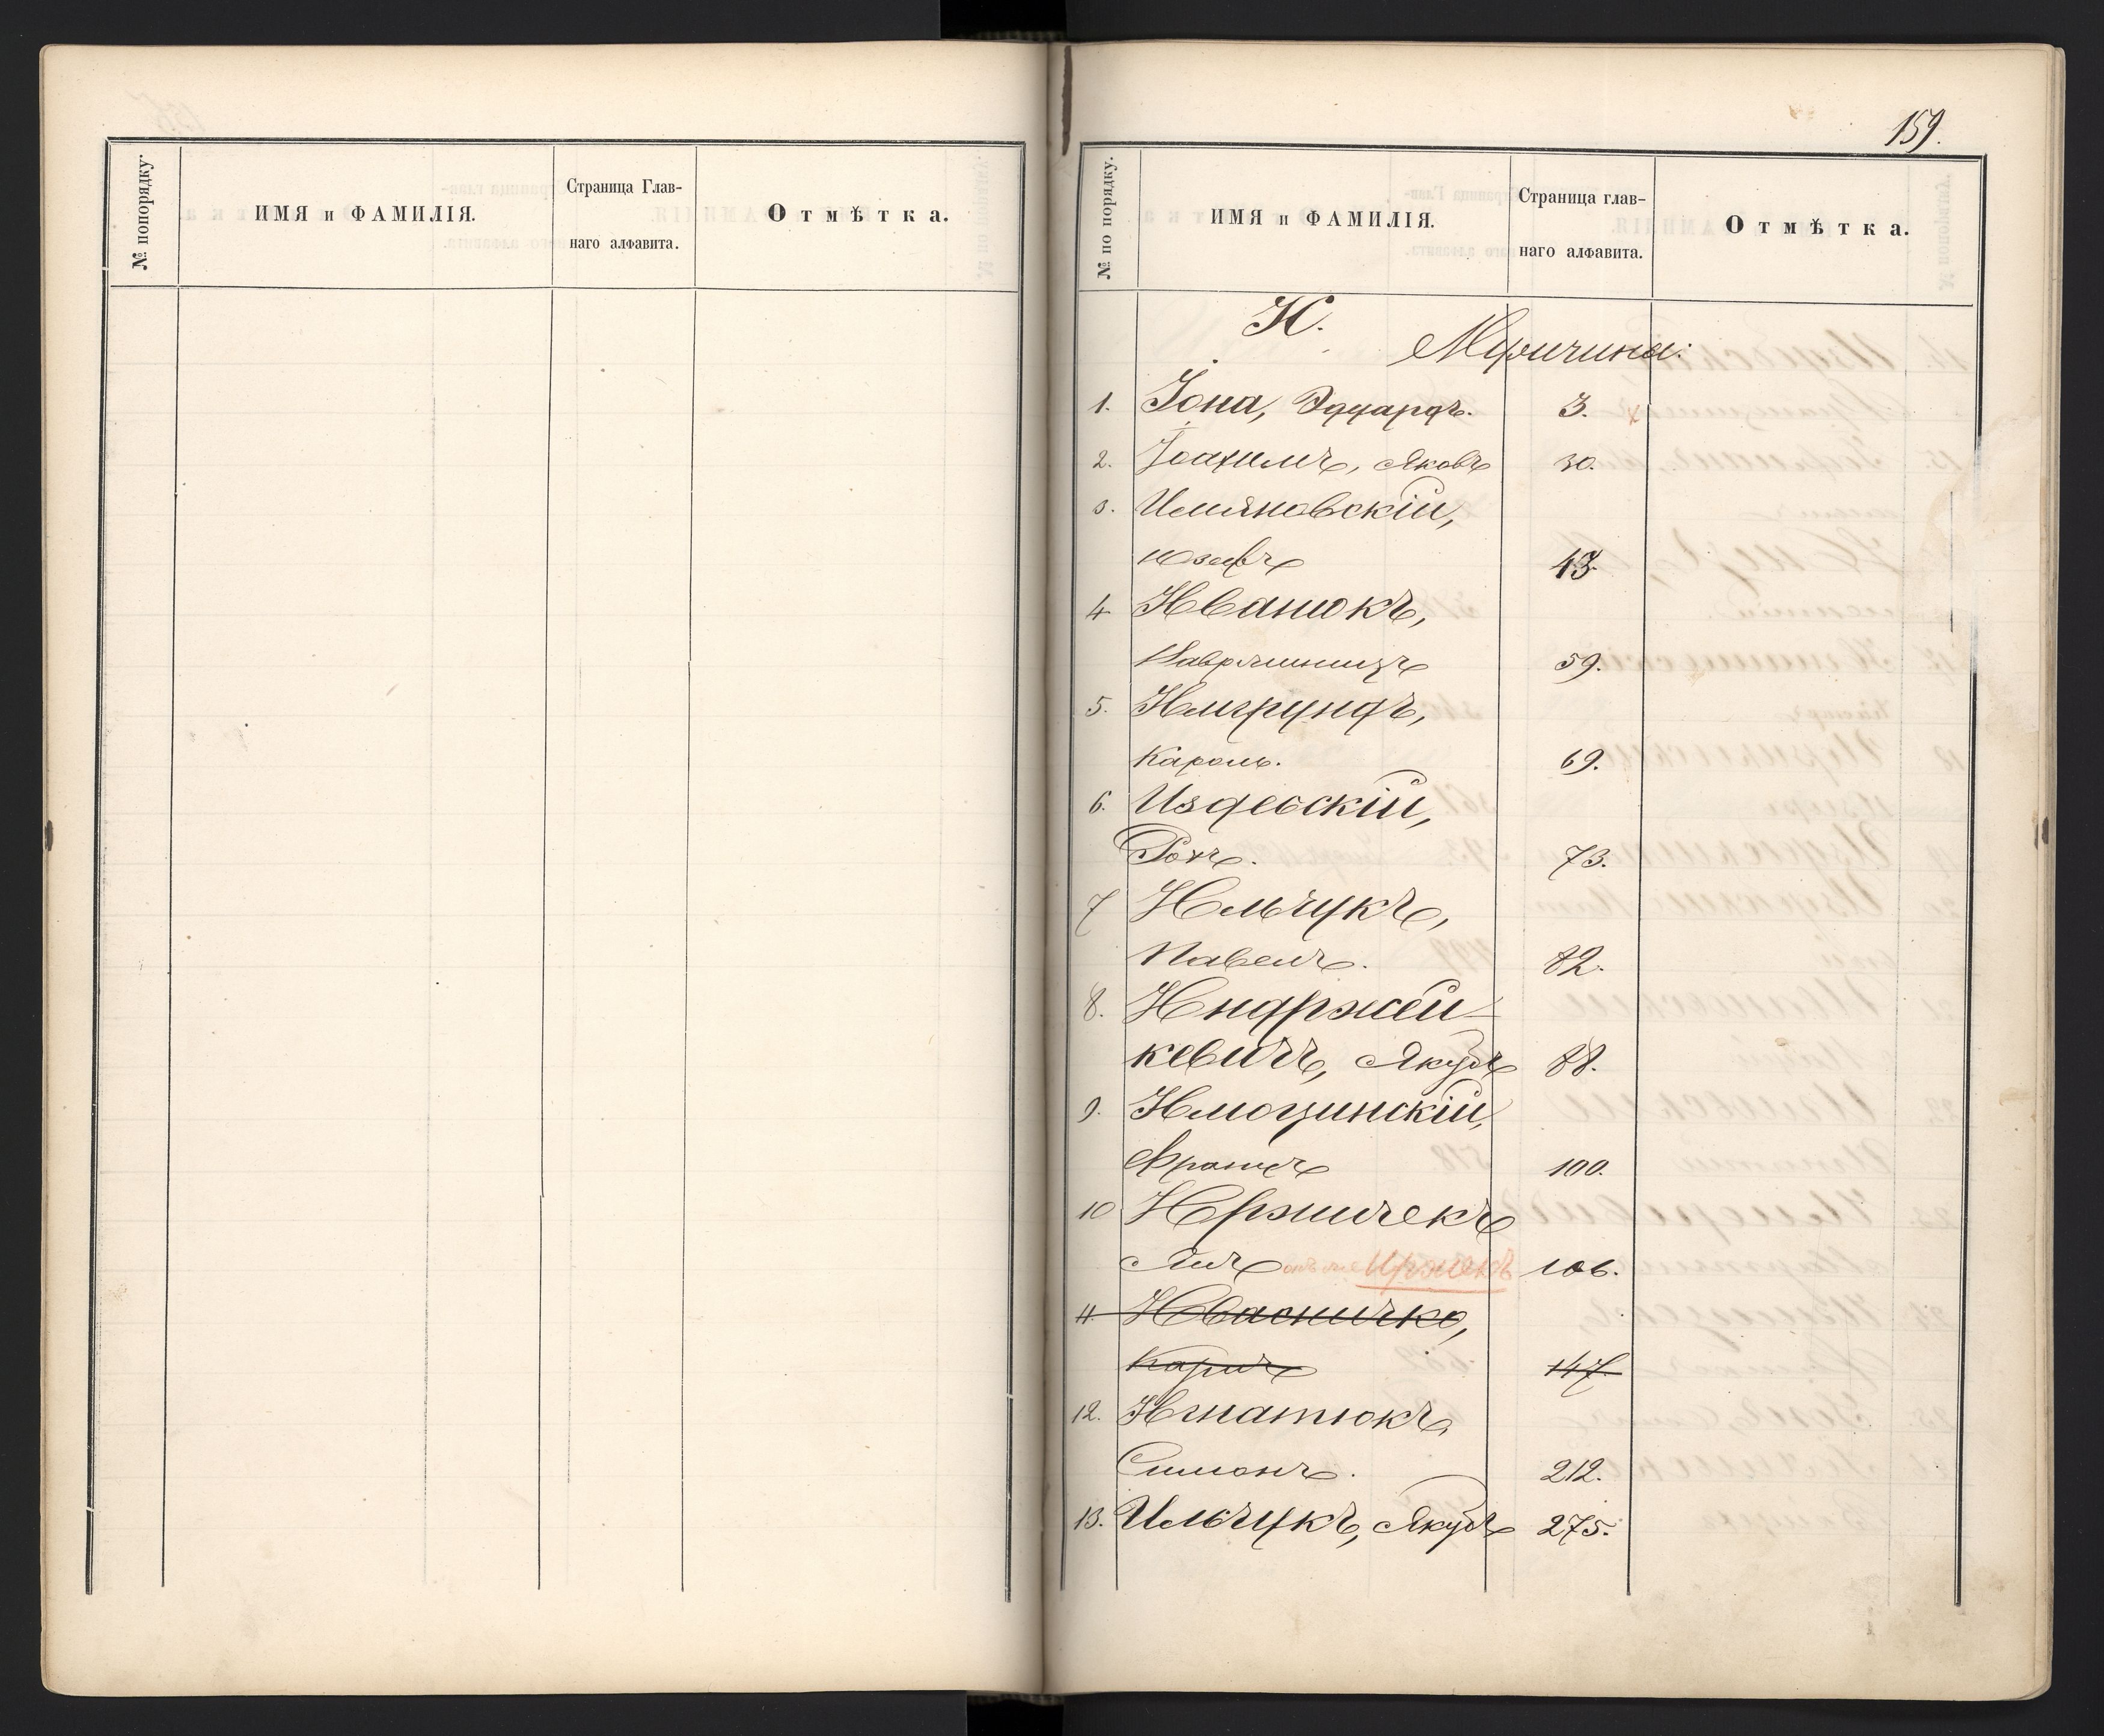 № попорядку.
ИМЯ и ФАМИЛІЯ.
Страница Глав-
наго алфавита.
Отмѣтка.
159.
№ по порядку.
ИМЯ и ФАМИЛІЯ.
Страница глав-
наго алфавита.
Отмѣтка.
И.
Мужчина:
1. Іона, Эдуардъ. 3.
2. Іоахимъ, Яковъ 30.
3. Имяновскій,
Юзефъ 43.
4 Иванюкъ,
59.
5. Имгрундъ,
Кароль. 69.
6. Издебскій,
Рохъ. 73.
7 Ильчукъ,
Павелъ. 82.
8. Индржей-
кевичъ, Якубъ 88.
9. Имогинскій,
Францъ 100.
10 Иржичекъ
Янъ Иржчекъ 106.
11. Иваничко,
Карлъ 147.
12. Игнатюкъ
Симонъ. 212.
13. Ильчукъ, Якубъ 275.